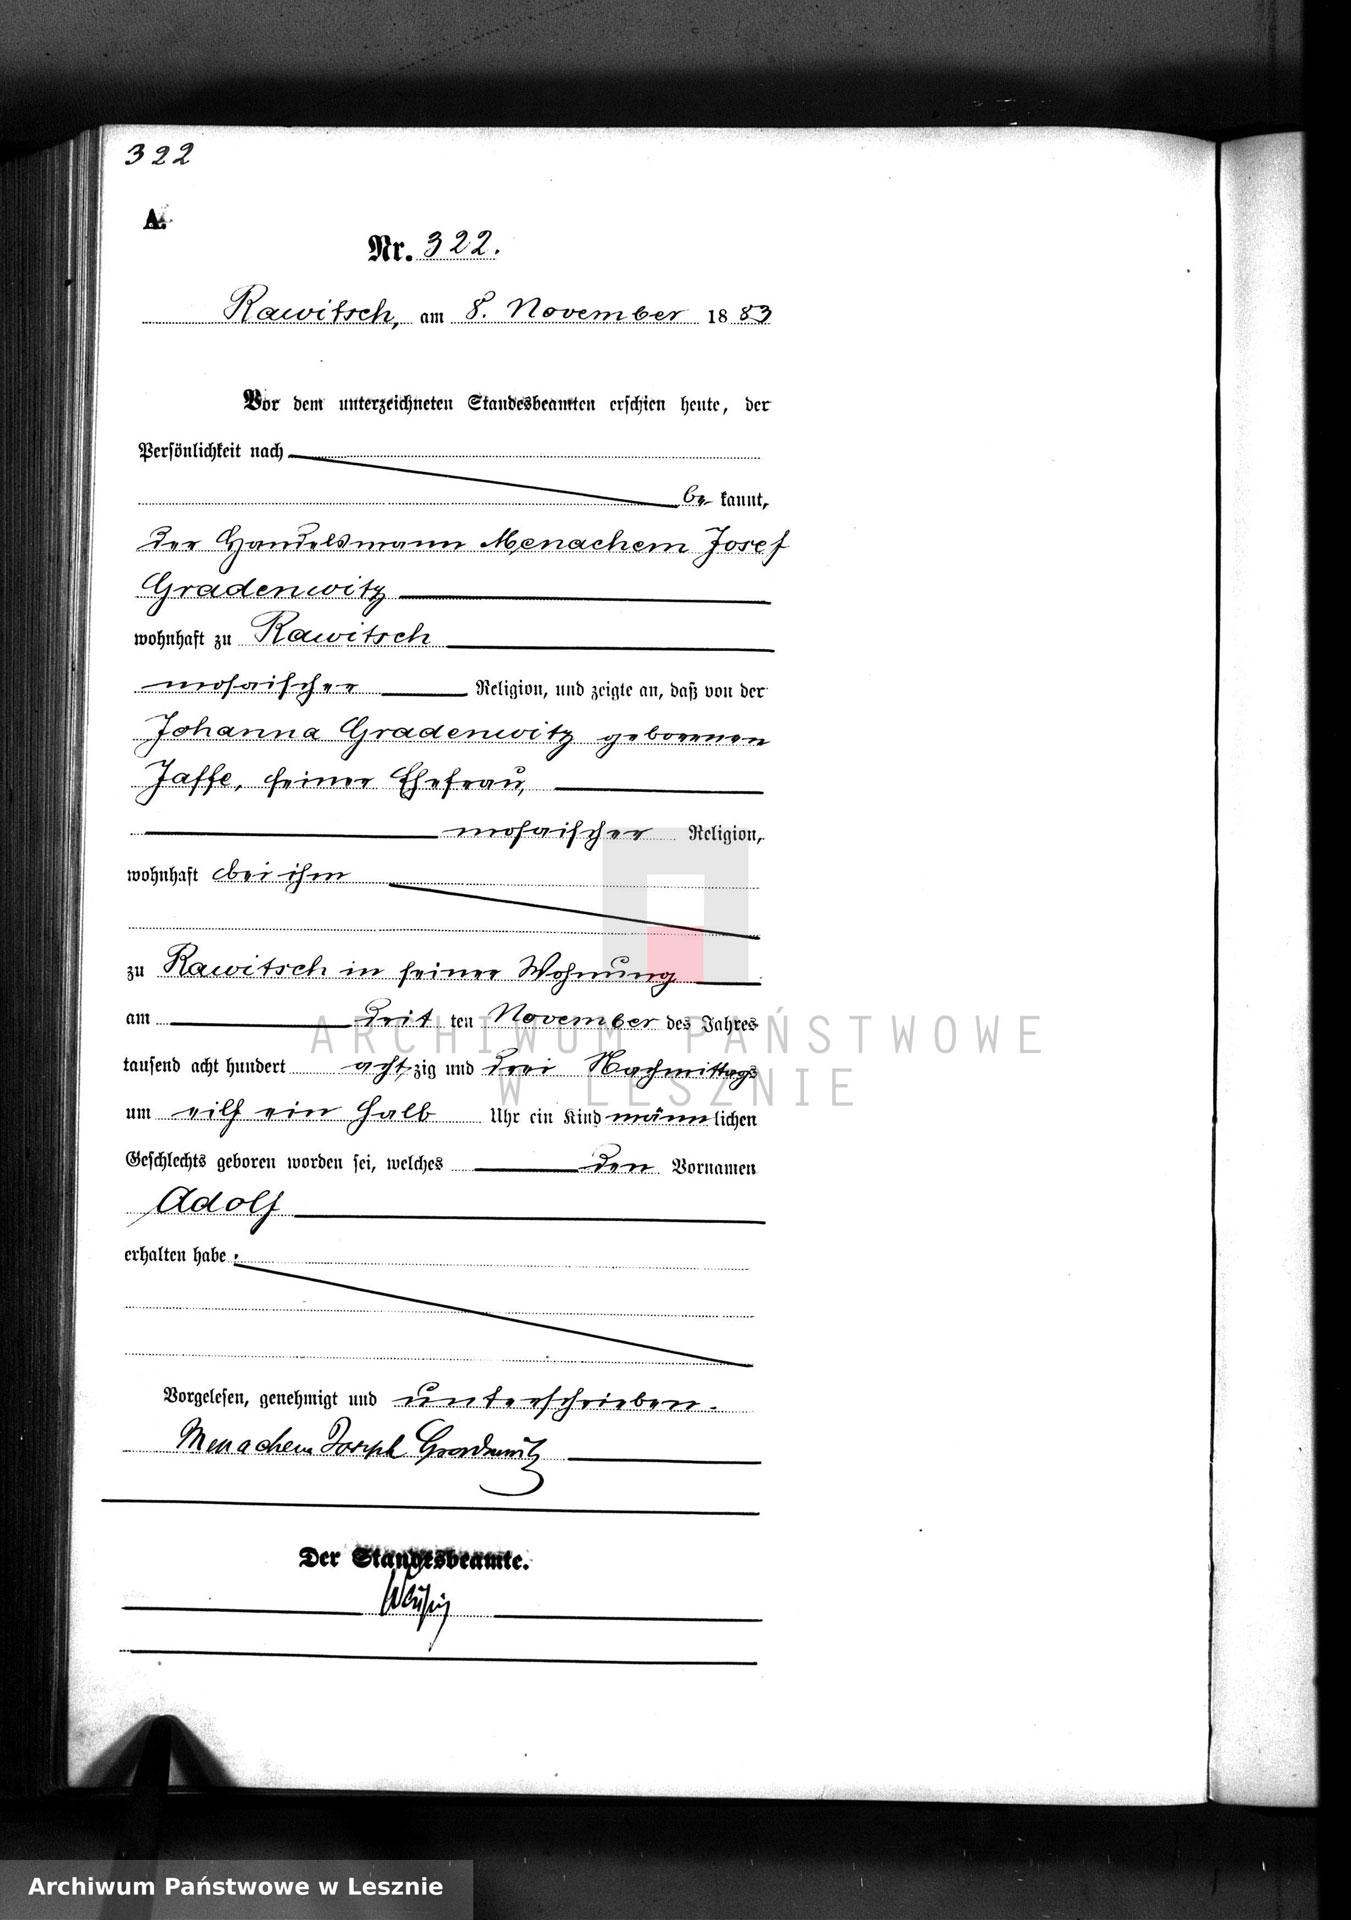 322
A.
Nr. 322.
Rawitsch, am 8. November 1883
Vor dem unterzeichneten Standesbeamten erschien heute, der
Persönlichkeit nach
be kannt,
der Handelsmann Menachem Josef
Gradenwitz
wohnhaft zu Rawitsch
mosaischer Religion, und zeigte an, daß von der
Johanna Gradenwitz geborenen
Jaffe, seiner Ehefrau,
mosaischer Religion,
wohnhaft bei ihm
zu Rawitsch in seiner Wohnung
am drit ten November des Jahres
tausend acht hundert acht zig und drei Nachmittags
um eilf ein halb Uhr ein Kind männlichen
Geschlechts geboren worden sei, welches den Vornamen
Adolf
erhalten habe.
Vorgelesen, genehmigt und unterschrieben.
Menachem Joseph Gradenwitz
Der Standesbeamte.
ARCHIWUM PAŃSTWOWE
W LESZNIE
Archiwum Państwowe w Lesznie